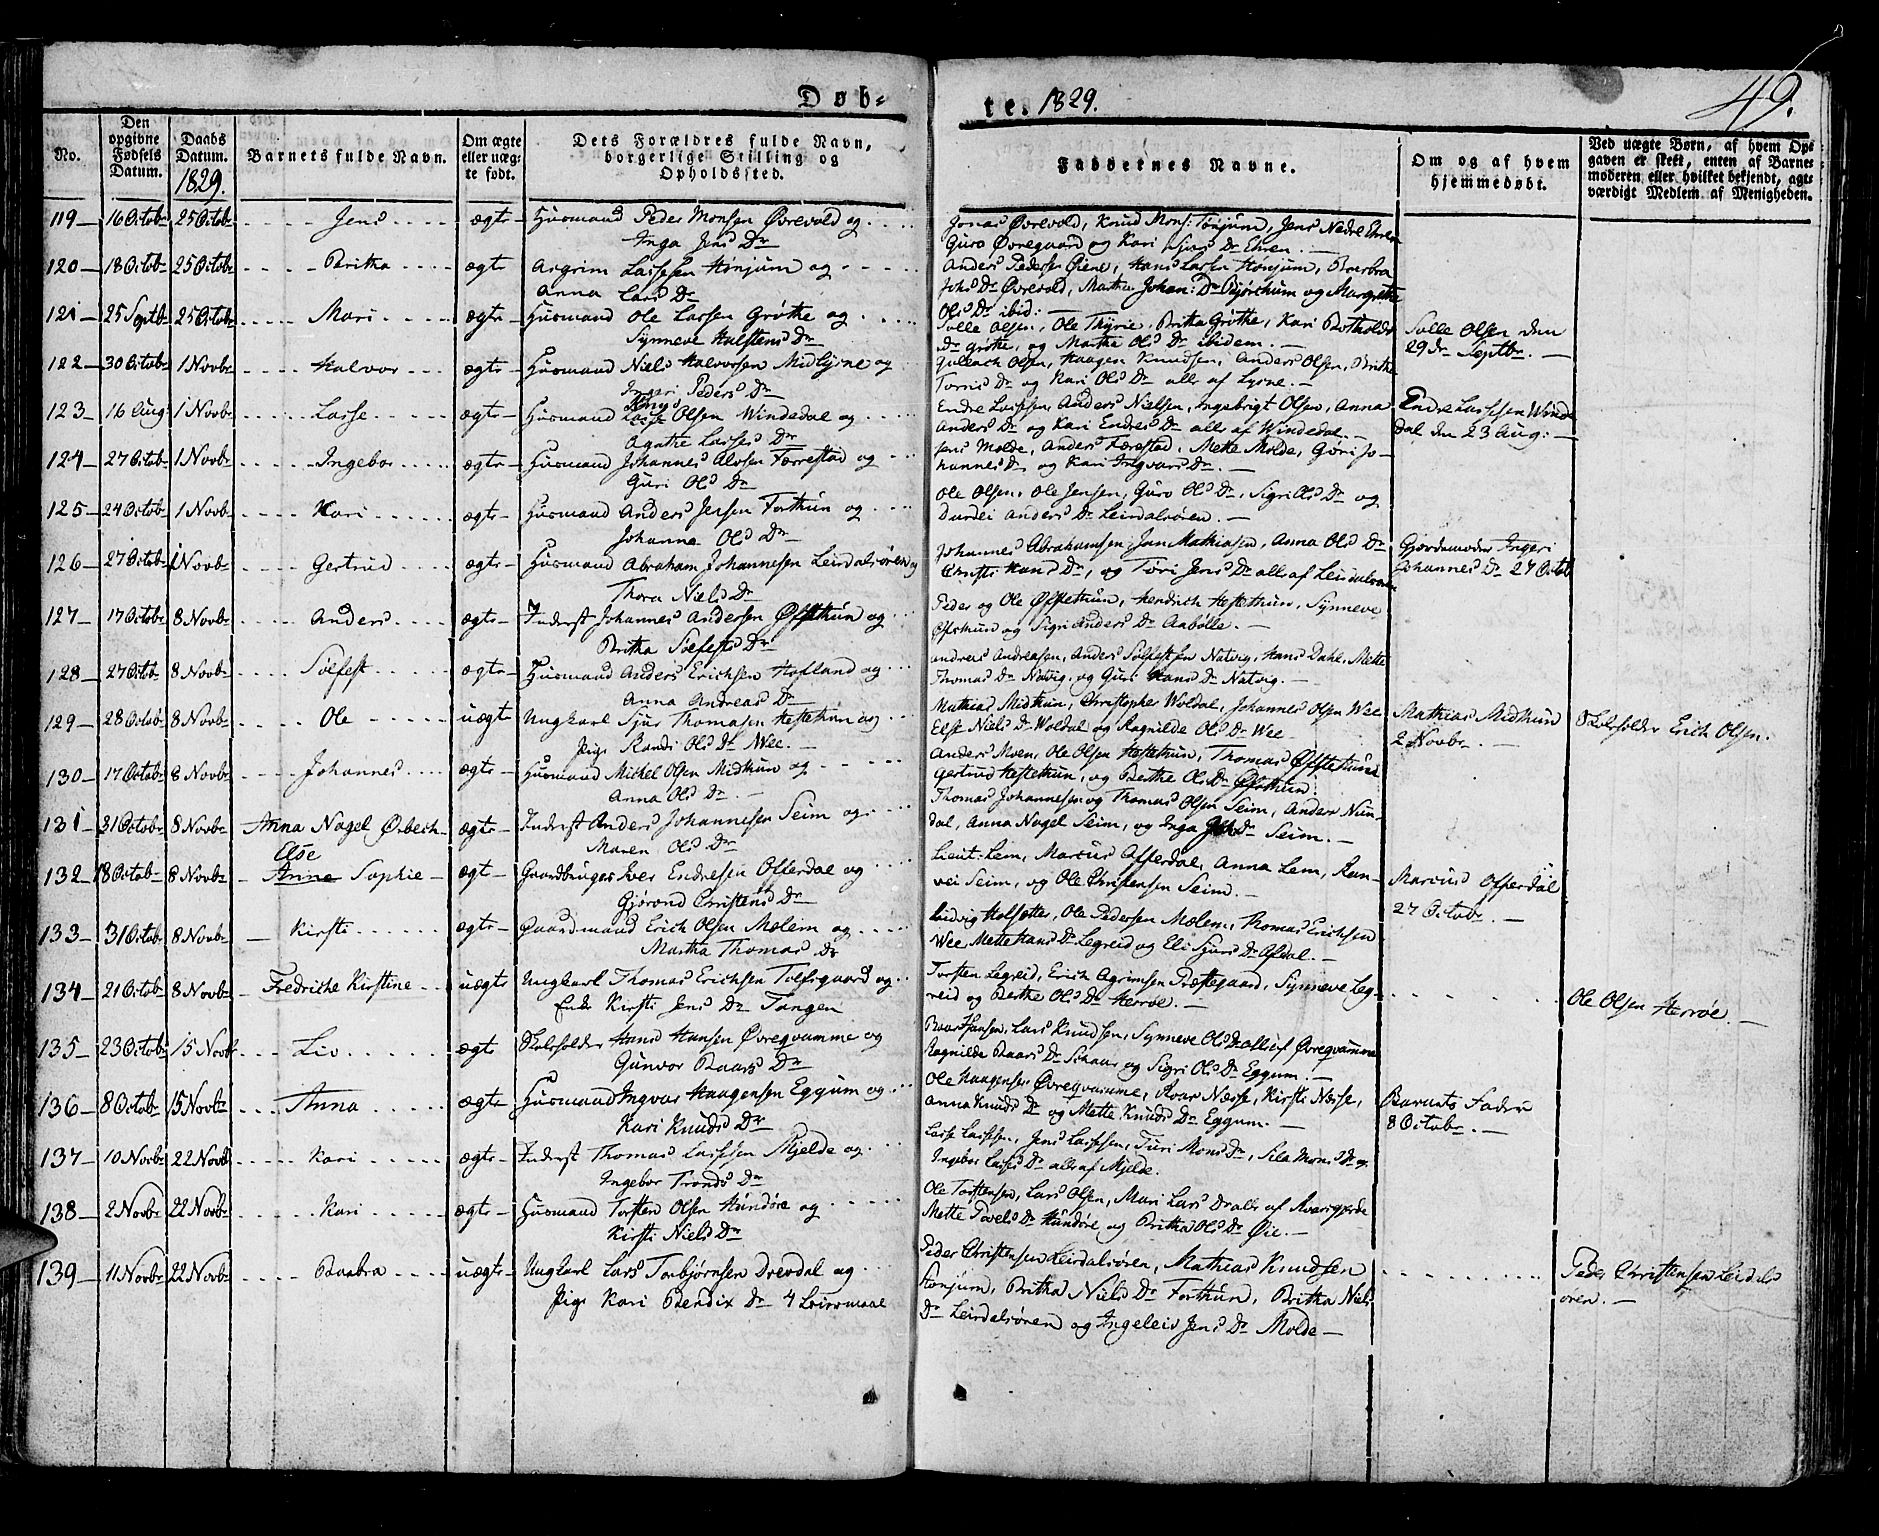 Døb-
te. 1829.
49.
No.
Den opgivne Fødsels Datum.
Daabs Datum. 1829.
Barnets fulde Navn.
Om ægte eller uægte født.
Dets Forældres fulde Navn, borgerlige Stilling og Opholdssted.
Faddernes Navne.
Om og af hvem hjemmedøbt.
Ved uægte Børn, af hvem Opgaven er skeet, enten af Barnemoderen eller hvilket bekjendt, agtværdigt Medlem af Menigheden.
119 16 Octob 25 Octob Jens ægte Huusmand Peder Monsen Øvrevold og
Inga Jens Dr
Jonas Øvrevold, Knud Mons: Tønjum, Jens Nedre Ehren
Guro Øvregaard og Kari Siurs Dr Ehren. —
120 18 Octob 25 Octob Britha ægte Asgrim Lassesen Hønjum og
Anna Lars Dr
Anders Pedersen Øiene, Hans Larsen Hønjum, Barbra
Johs Dr Øvrevold, Martha Johan: Dr Bjørkhum og Margrethe
Ols Dr ibid: —
121 25 Septb 25 Octob Mari ægte Huusmand Ole Larsen Grøthe og
Synneve Halstens Dr
Solle Olsen, Ole Thyrie, Britha Grøthe, Kari Botholds
Dr Grøthe, og Martha Ols Dr ibidem. —
Solle Olsen den
29de Septbr. —
122 30 Octob 1 Novb Halvor ægte Huusmand Niels Halvorsen Midlysne og
Ingri Peders Dr
Gullach Olsen, Haagen Knudsen, Anders Olsen, Brithe
Torris Dr og Kari Ols Dr alle af Lysne. —
123 16 Aug 1 Novb Lasse ægte Huusmand Olsen Windedal og
Agathe Lasses Dr
Endre Lassesen, Anders Nielsen, Ingebrigt Olsen, Anna
Anders Dr og Kari Endres Dr alle af Windedal. —
Endre Lassesen Winde
dal den 23 Aug: —
124 27 Octob 1 Novb Ingebor ægte Huusmand Johannes Alvsen Færrestad og
Guri Ols Dr
Jens Molde, Anders Færestad, Mette Molde, Gøri Jo-
hannes Dr og Kari Ingvars Dr. —
125 24 Octob 1 Novb Kari ægte Huusmand Anders Jensen Forthun og
Johanna Ols Dr
Ole Olsen, Ole Jensen, Guro Ols Dr, Sigri Ols Dr og
Durdei Anders Dr Leirdalsøren. —
126 27 Octob 1 Novb Gertrud ægte Huusmand Abraham Johannesen Leirdalsøren og
Thora Niels Dr
Johannes Abrahamsen, Jan Mathiasen, Anna Ols Dr
Christi Hans Dr, og Tøri Jens Dr alle af Leirdalsøren
Gjordemoder Ingeri
Johannes Dr 27 Octob
127 17 Octob 8 Novb Anders ægte Inderst Johannes Andersen Øffsthun og
Britha Solfests Dr
Peder og Ole Øffstethun, Hendrich Heftethun, Synneve
Øfsthun og Sigri Anders Dr Aabølle. —
128 27 Octob 8 Novb Solfest ægte Huusmand Anders Erichsen Hofland og
Anna Andreas Dr
Andreas Andreasen, Anders Solfestsen Natvig, Hans Dahl, Mette
Thomas Dr Natvig og Guri Hans Dr Natvig. —
129 28 Octob 8 Novb Ole uægte Ungkarl Sjur Thomasen Heftethun og
Pige Randi Ols Dr Wee. —
Mathias Midthun, Christopher Woldal, Johannes Olsen Wee
Else Niels Dr Woldal og Ragnilde Ols Dr Wee
Mathias Midthun
2 Novbr. —
Skoleholder Erich Olsen.
130 17 Octob 8 Novb Johannes ægte Huusmand Mickel Olsen Midthun og
Anna Ols Dr. —
Anders Moen, Ole Olsen Heftethun, Thomas Øffstethun
Gertrud Heftethun, og Berthe Ols Dr Øfsthun.
131 31 Octob 8 Novb Anna Nagel Ørbech ægte Inderst Anders Johannesen Seim og
Maren Ols Dr
Thomas Johannesen og Thomas Olsen Seim, Anders Nun-
dal, Anna Nagel Seim, og Inga Joh Dr Seim. —
132 18 Octob 8 Novb Else Anne Sophie ægt Gaardbruger Iver Endresen Offerdal og
Gjørond Christens Dr
Lieut: Lem, Marcus Offerdal, Anna Lem, Ran-
vei Seim, og Ole Christensen Seim. —
Marcus Offerdal
27 Octobr. —
133 31 Octob 8 Novb Kirsti ægte Gaardmand Erich Olsen Molem og
Martha Thomas Dr
Ludvig Holsætter, Ole Pedersen Molem, Thomas Erichsen
Wee, Mette Hans Dr Legreid og Eli Sjurs Dr Afdal. —
134 21 Octob 8 Novb Fredriche Kirstine uægte Ungkarl Thomas Erichsen Tofregaard og
Enke Kirsti Jens Dr Tangen
Torsten Legreid, Erich Agrimsen Præstegaard, Synneve Leg-
reid og Berthe Ols Dr Herrøe. —
Ole Olsen Herrøe. —
135 23 Octob 15 Novb Liv ægte Skoleholder Hans Hansen Øvreqvamme og
Gunvor Baars Dr
Baar Hansen, Lars Knudsen, Synneve Ols Dr alle af Øvreqvamme
Ragnilde Baars Dr Schaar og Sigri Ols Dr Eggum. —
136 8 Octob 15 Novb Anna ægte Huusmand Ingvar Haagensen Eggum og
Kari Knuds Dr
Ole Haagensen Øvreqvamme, Roar Næsse, Kirsti Næsse,
Anna Knuds Dr og Mette Knuds Dr Eggum. —
Barnets Fader
8 Octobr. —
137 10 Novbr 22 Novb Kari ægte Inderst Thomas Lassesen Mjelde og
Ingebor Tronds Dr
Lasse Lassesen, Jens Lassesen, Turi Mons Dr, Sila Mons Dr og
Ingebor Lasses Dr alle af Mjelde.
138 2 Novbr 22 Novb Kari ægte Huusmand Torsten Olsen Hundøre og
Kirsti Niels Dr
Ole Torstensen, Lars Olsen, Mari Lars Dr alle af Kverigjerde
Mette Povels Dr Hundøre og Britha Ols Dr Øie. —
139 11 Novbr 22 Novb Baabra uægte Ungkarl Lars Torbjørnsen Drevdal og
Pige Kari Bendix Dr 4 Leiermaal
Peder Christensen Leirdalsøren, Mathias Knudsen
Stønjum, Britha Niels Dr Forthun, Britha Niels
Dr Leirdalsøren og Ingeleiv Jens Dr Molde —
Peder Christensen Leirdals
øren. —